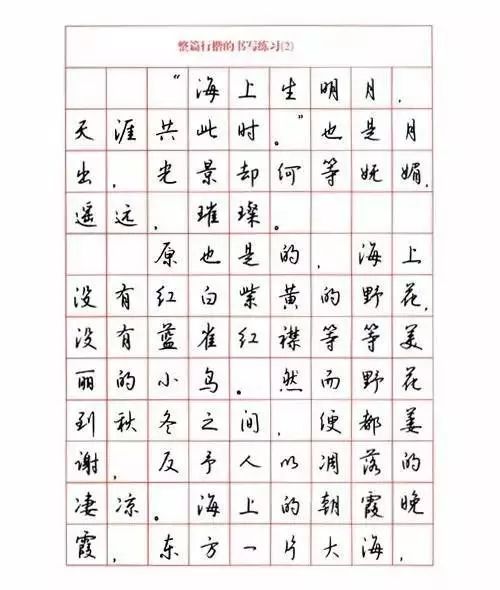 整篇行楷的书写练习(2)
“海上生明月，
天涯共此时。”也是月
出，光景却何等妩媚，
遥远，璀璨。
原也是的，海上
没有红白紫黄的野花，
没有蓝雀红襟等等美
丽的小鸟。然而野花
到秋冬之间，便都萎
谢，反予人以凋落的
凄凉。海上的朝霞晚
霞，东方一片大海，